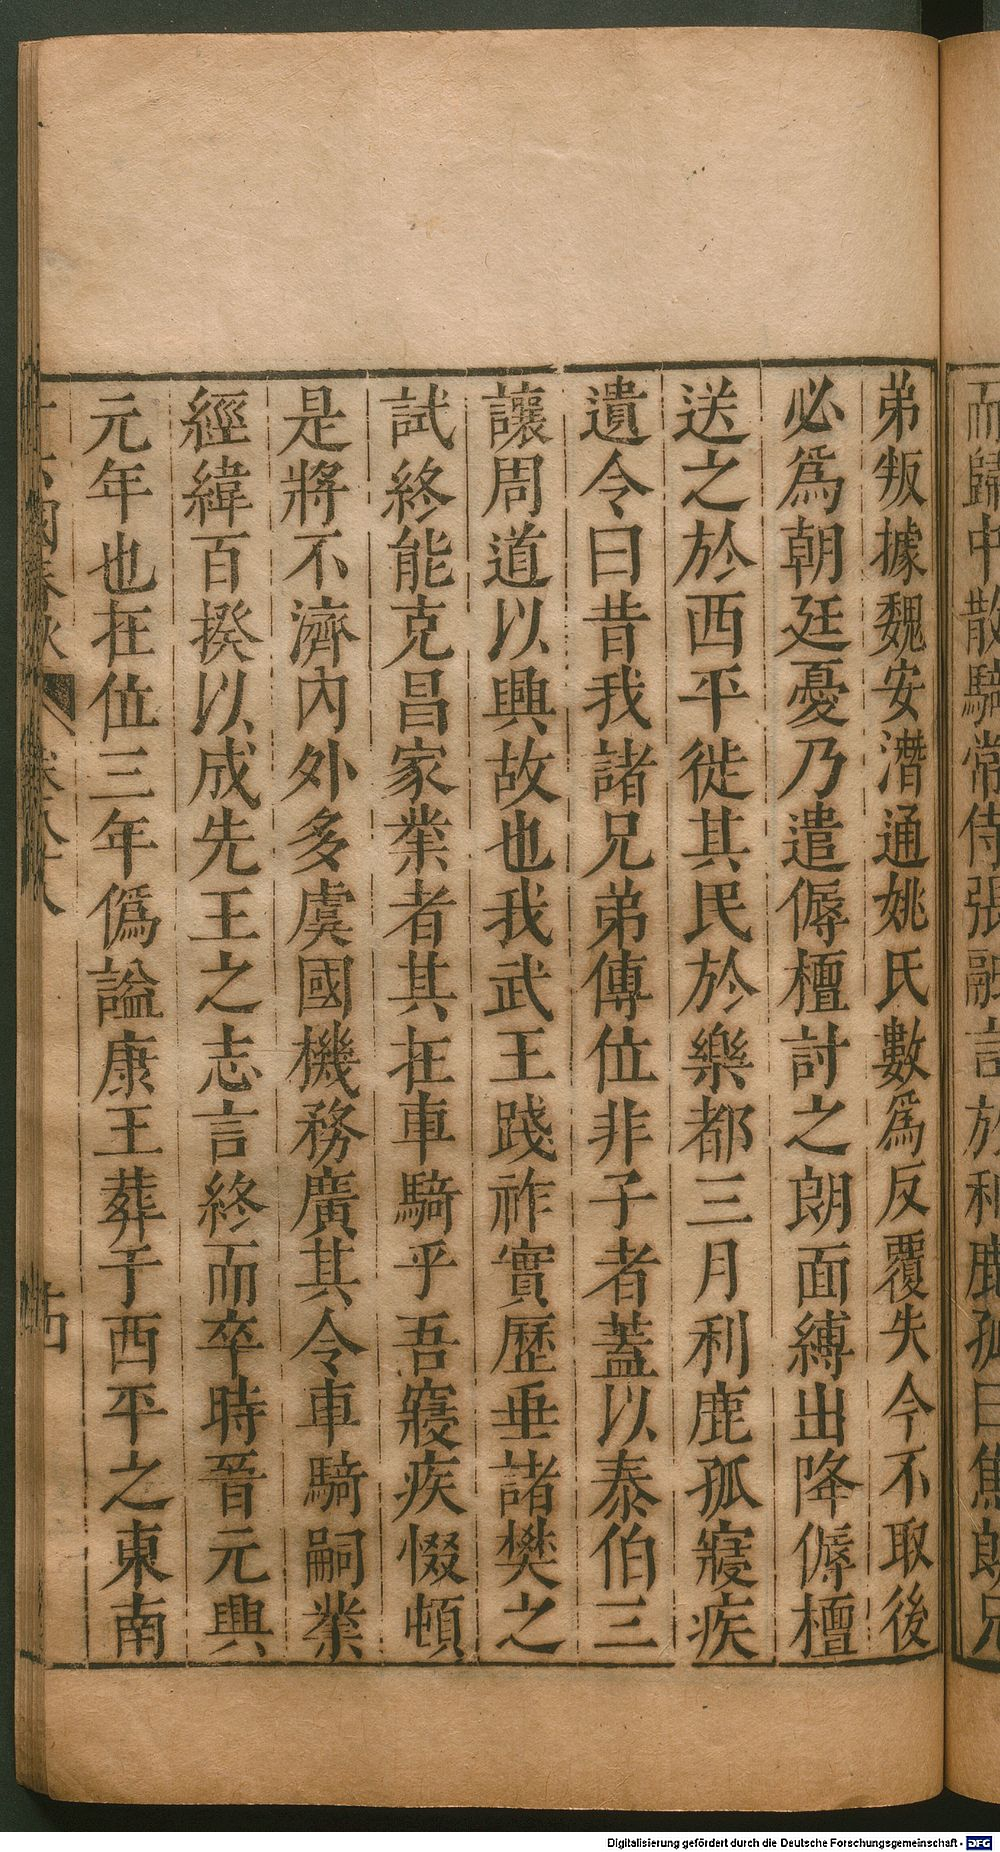 而歸中散騎常侍張融言於利鹿孤曰焦朗兄
弟叛據魏安潛通姚氏數爲反覆失今不取後
必爲朝廷憂乃遣傉檀討之朗面縛出降傉檀
送之於西平徙其民於樂都三月利鹿孤寢疾
遺令曰昔我諸兄弟傳位非子者蓋以泰伯三
讓周道以興故也我武王踐祚實歷垂諸樊之
試終能克昌家業者其在車騎乎吾寢疾惙頓
是將不濟內外多虞國機務廣其令車騎嗣業
經緯百揆以成先王之志言終而卒時晉元興
元年也在位三年僞諡康王葬于西平之東南
十六國春秋 卷八十八 十四
Digitalisierung gefördert durch die Deutsche Forschungsgemeinschaft - DFG